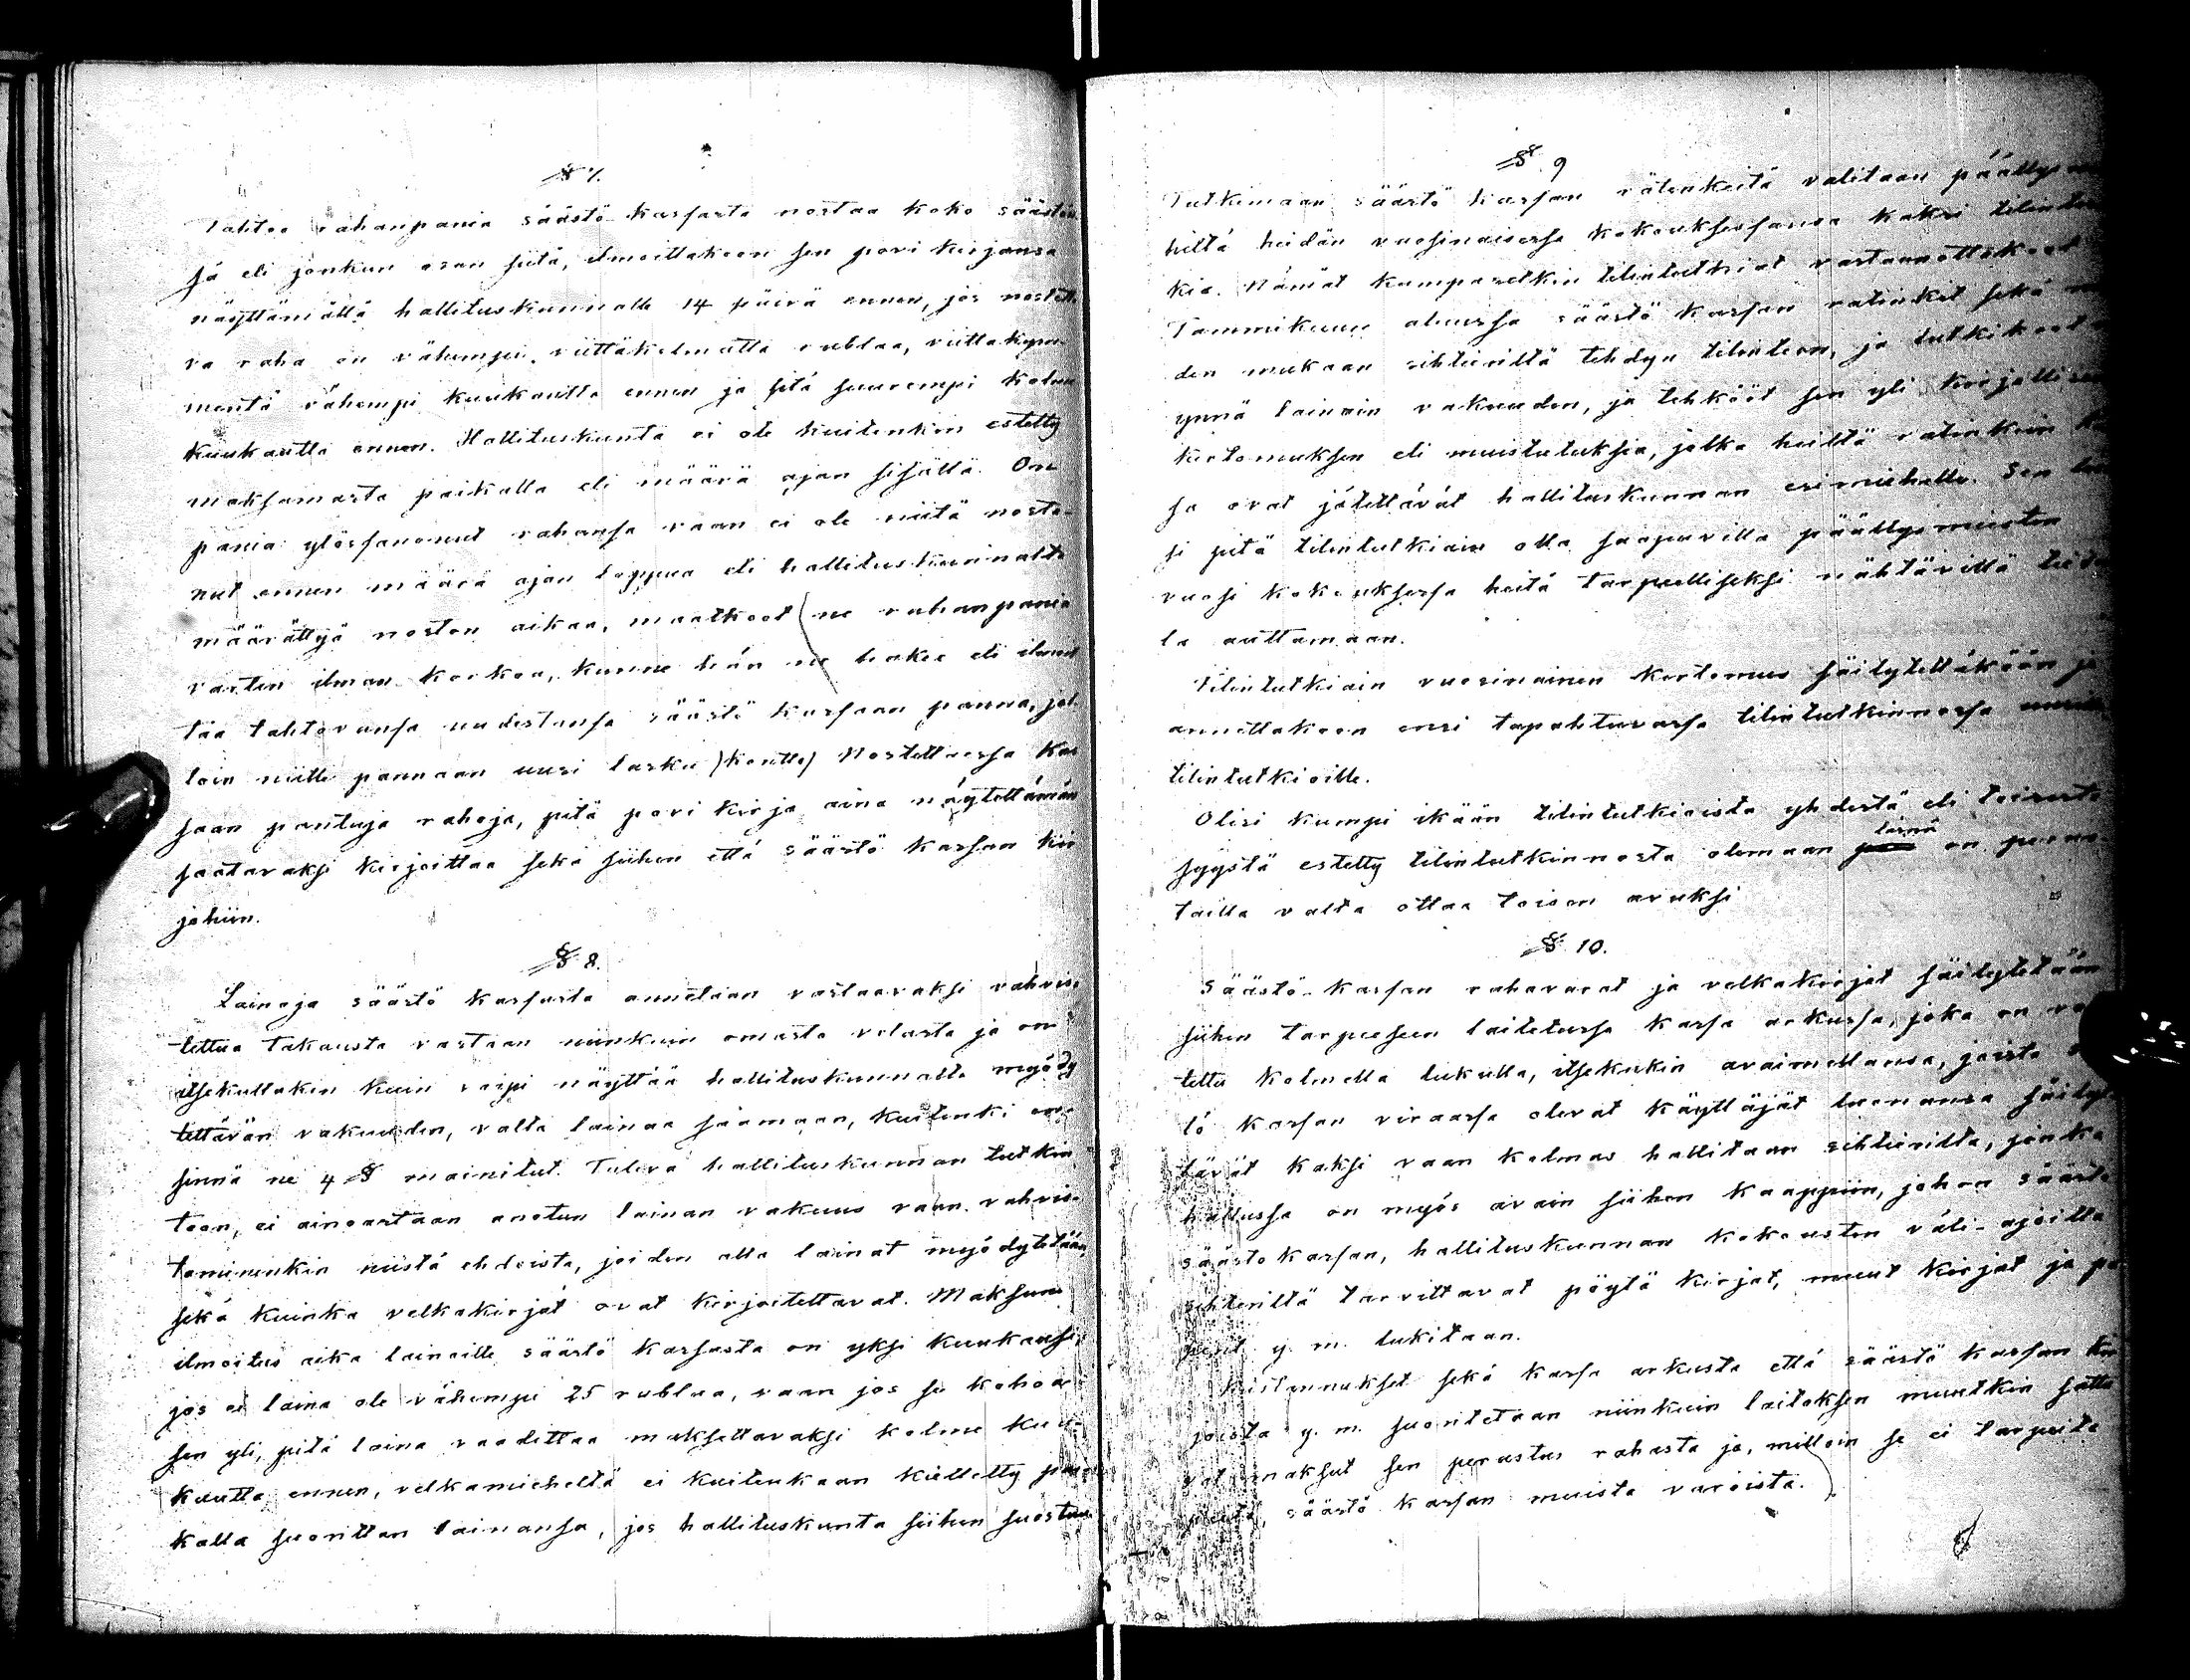 § 7.
Tahtoo rahanpania säästö kassasta nostaa koko säästön
sä eli jonkun osan siitä, ilmoittakoon sen povi kirjansa
näyttämällä hallituskunnalle 14 päivä ennen, jos nostetta
va raha on vähempi viittäkolmatta rublaa, viittakym-
mentä vähempi kuukautta ennen ja sitä suurempi kolme
kuukautta ennen. Hallituskunta ei ole kuitenkin estetty
maksamasta paikalla eli määrä ajan sisällä. On
pania ylössanonut rahansa vaan ei ole niitä nosta-
nut ennen määrä ajan loppua eli hallituskunnalta
määrättyä noston aikaa, maatkoot ne rahanpania
varten ilman korkoa, kunne hän ne hakee eli ilmoit
taa tahtovansa uudestansa säästö kassaan panna, jol-
loin niille pannaan uusi lasku (kontto) Nostettaessa kas
saan pantuja rahoja, pitä povi kirja aina näytettämän
saatavaksi kirjoittaa sekä siihen että säästö kassan kir
johiin.
§ 8.
Lainoja säästö kassasta annetaan vastaavaksi vahvis-
tettua takausta vastaan niinkuin omasta velasta ja on
itsekullakin kuin voipi näyttää hallituskunnalle myödy
tettävän vakuuden, valta lainaa saamaan, kuitenki en-
sinnä ne 4 § mainitut. Tuleva hallituskunnan tutkin
toon, ei ainoastaan anotun lainan vakuus vaan vahvis-
taminenkin niistä ehdoista, joiden alla lainat myödytetään,
sekä kuinka velkakirjat ovat kirjoitettavat. Maksun
ilmoitus aika lainoille säästö kassasta on yksi kuukausi,
jos ei laina ole vähempi 25 rublaa, vaan jos se kohoa
sen yli, pitä laina vaadittaa maksettavaksi kolme kuu-
kautta ennen, velkamieheltä ei kuitenkaan kielletty pai
kalla suorittaa lainansa, jos hallituskunta siihen suostuu.
§ 9
Tutkimaan säästö kassan rätinkeitä valitaan päällys
hiltä heidän vuosinaisessa kokouksessansa kaksi tilintut
kia. Nämät kumpasetkin tilintutkiat vastaanottakoot
Tammikuun alussa säästö kassan ratinkit sekä
den mukaan sihteeriltä tehdyn tilinteon, ja tutkikoot
ynnä lainain vakuuden, ja tehkööt sen yli kirjallisen
kertomuksen eli muistutuksia, jotka heiltä ratinkein
sa ovat jätettävät hallituskunnan esimiehelle. Sen
si pitä tilintutkiain olla saapuvilla päällysmiesten
vuosi kokouksessa heitä tarpeelliseksi nähtävillä tiedo
la auttamaan.
Tilintutkiain vuosinainen kertomus säilytettäköön ja
annettakoon ensi tapahtuvassa tilintutkinnossa uusille
tilintutkioille.
Olisi kumpi ikään tilintutkioista yhdestä eli toisesta
syystä estetty tilintutkinnosta olemaan läsnä on
toilla valta ottaa toisen avuksi
§ 10.
Säästö-kassan rahavarat ja velkakirjat säilytetään
siihen tarpeeseen laitetussa kassa arkussa, joka on
tettu kolmella lukulla, itsekukin avaimellansa, joista
lä kassan viraassa olevat käyttäjät luonansa säily
tävät kaksi vaan kolmas hallitaan sihteeriltä, jonka
hallussa on myös avain siihen kaappiin, johon säästö
säästökassan, hallituskunnan kokousten väli-ajoilla
sihteriltä tarvittavat pöytä kirjat, muut kirjat ja pa
perit y. m. lukitaan.
Kustannukset sekä kassa arkusta että säästö kassan kir
joista y. m. suoritetaan niinkuin laitoksen muutkin satta
vat maksut sen perustus rahasta ja, milloin se ei tarpeita
säästö kassan muista varoista.